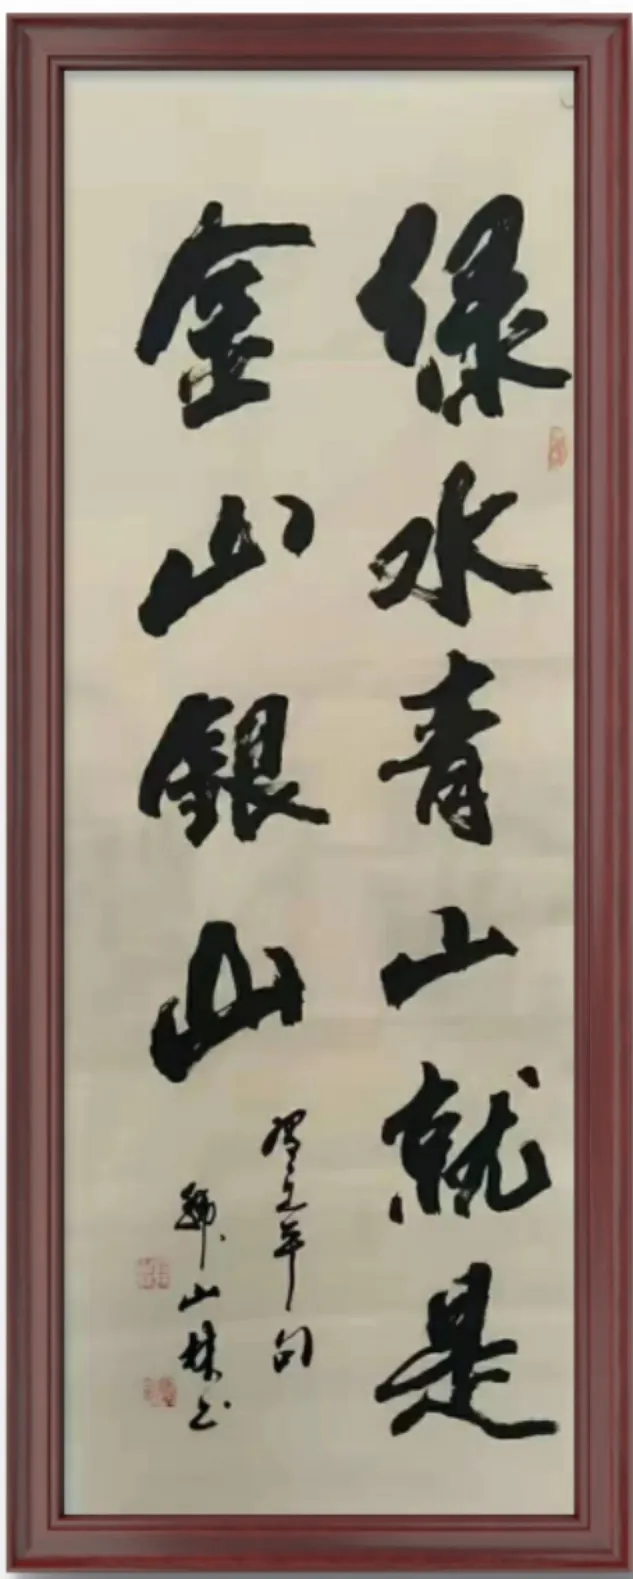 绿水青山就是
金山銀山
年句
山林书